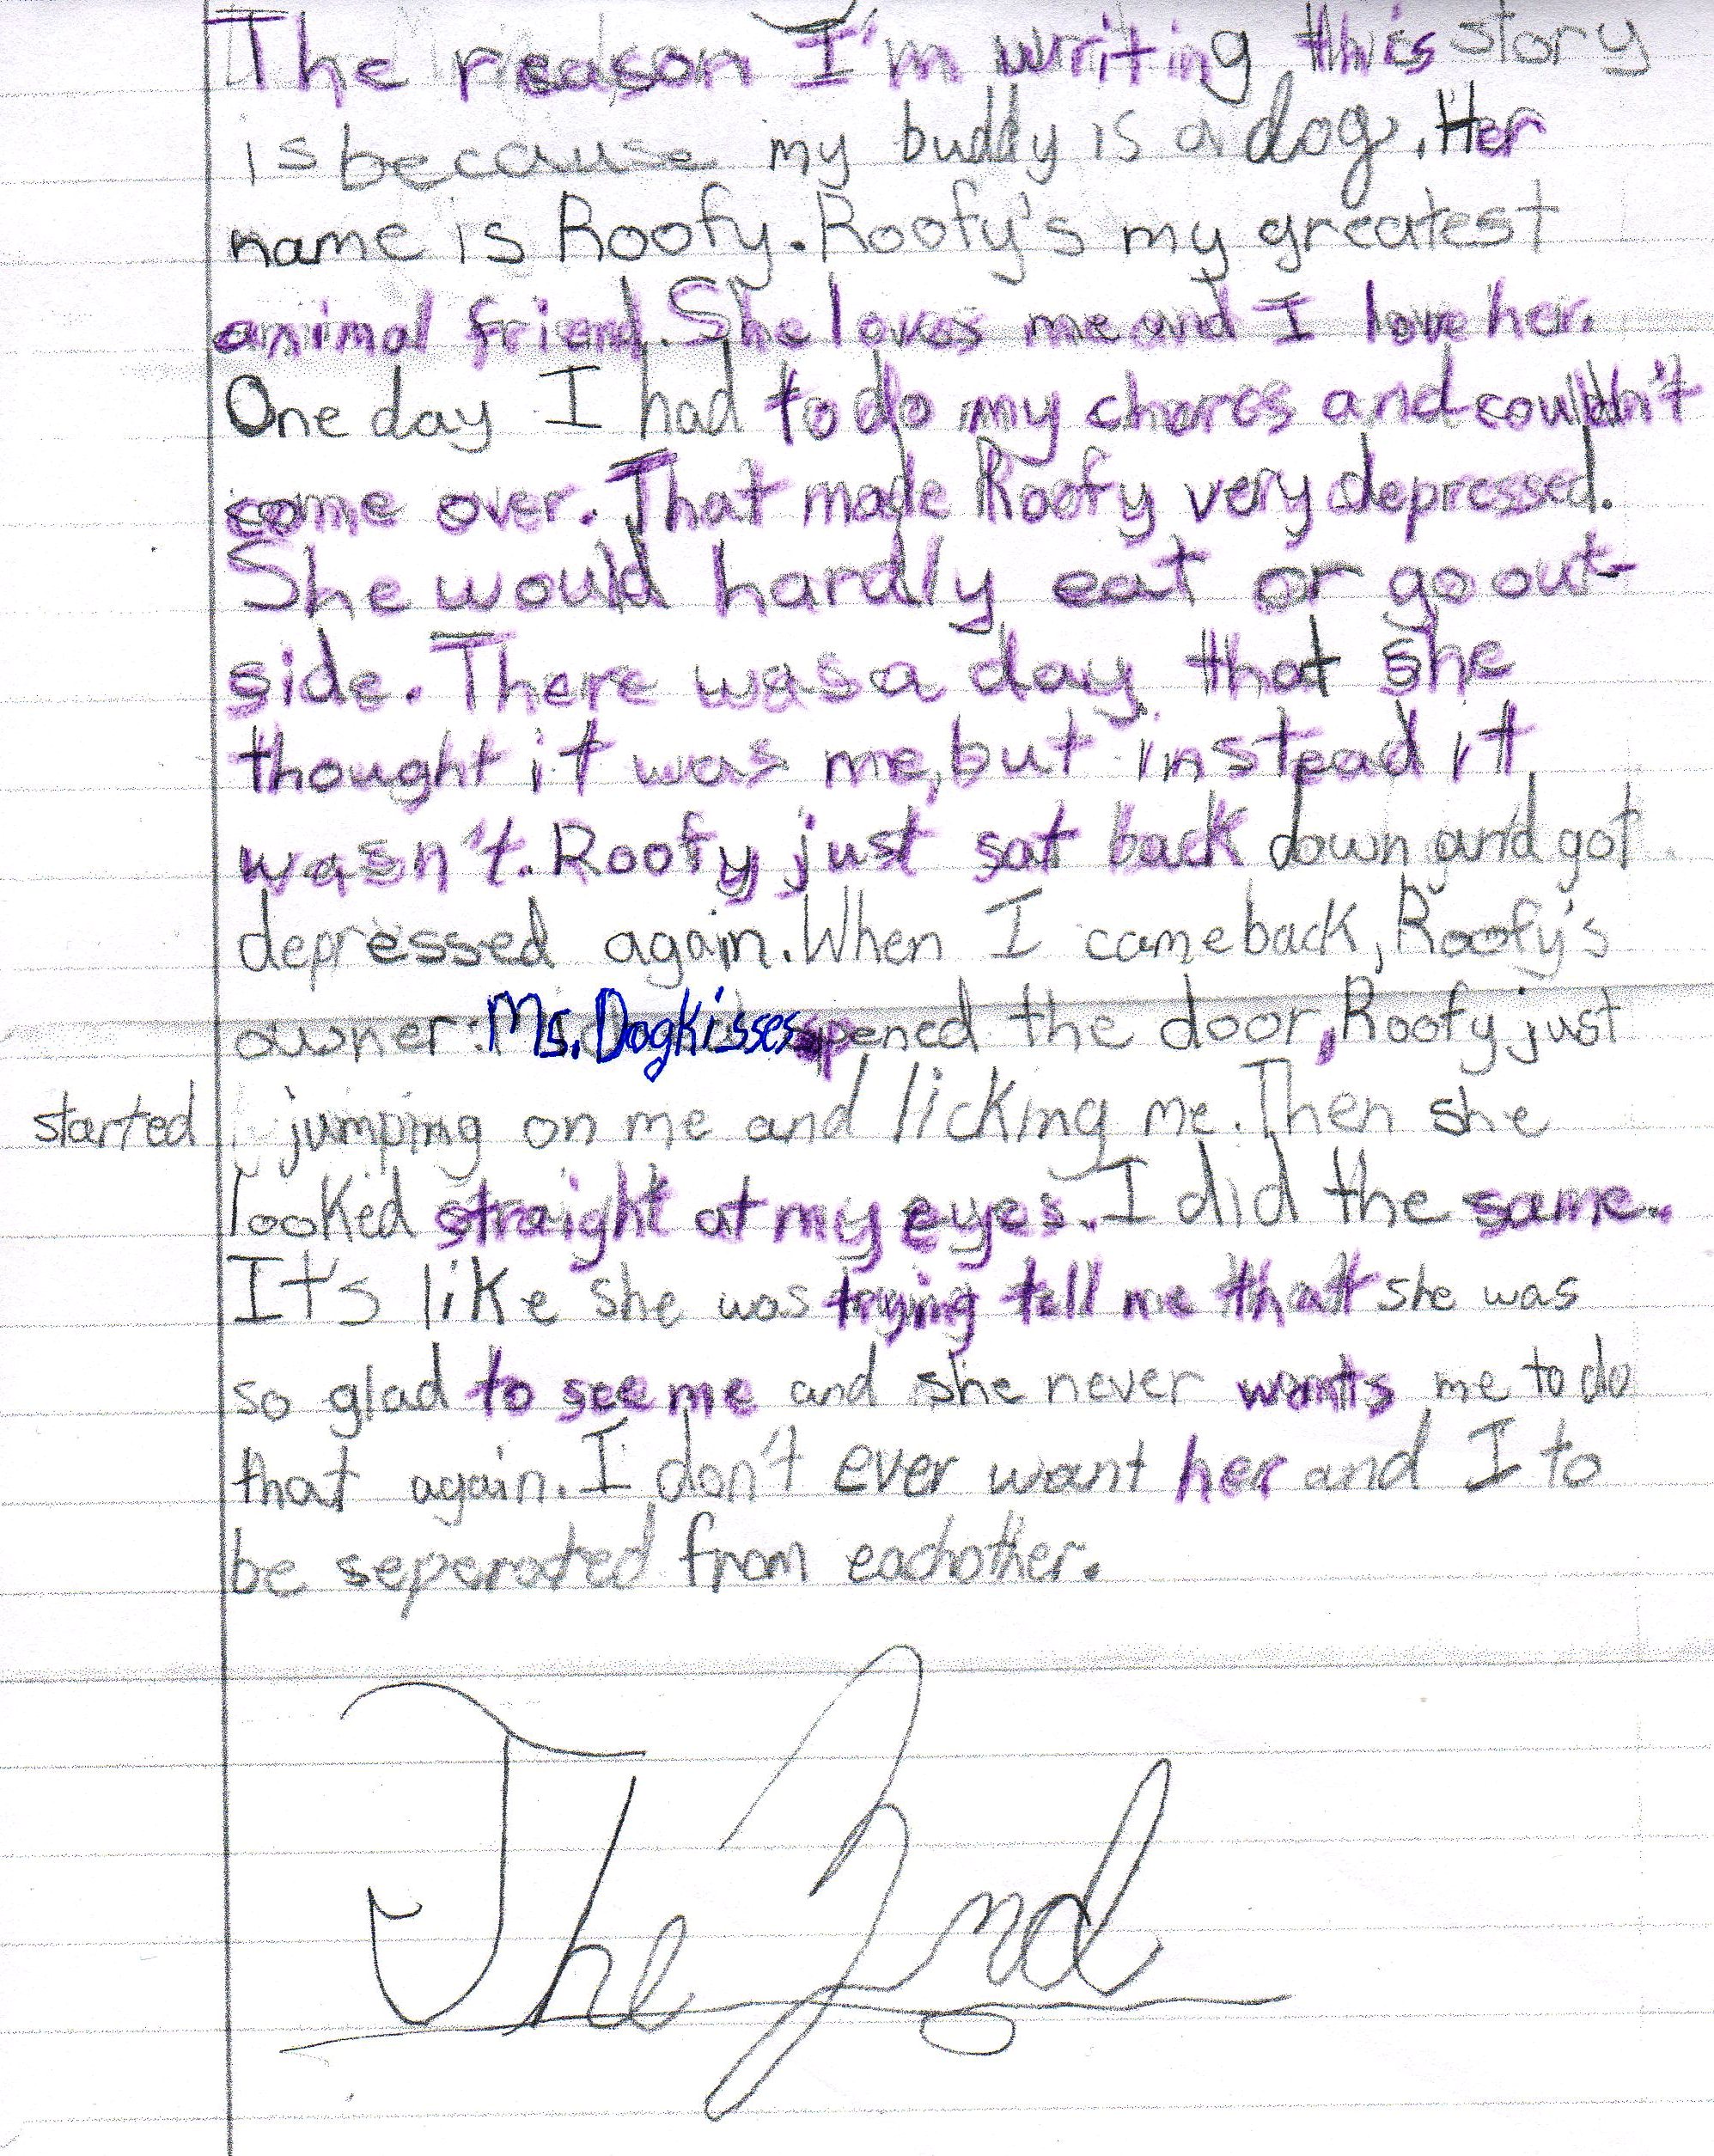 The reason I'm writing this story
is because my buddy is a dog. Her
name is Roofy. Roofy's my greatest
animal friend. She loves me and I love her.
One day I had to do my chores and couldn't
come over. That made Roofy very depressed.
She would hardly eat or go out-
side. There was a day that she
thought it was me, but instead it
wasn't. Roofy just sat back down and got
depressed again. When I came back, Roofy's
owner: Ms. Dogkisses opened the door, Roofy just
started jumping on me and licking me. Then she
looked straight at my eyes. I did the same.
It's like she was trying tell me that she was
so glad to see me and she never wants me to do
that again. I don't ever want her and I to
be seperated from eachother.
The End